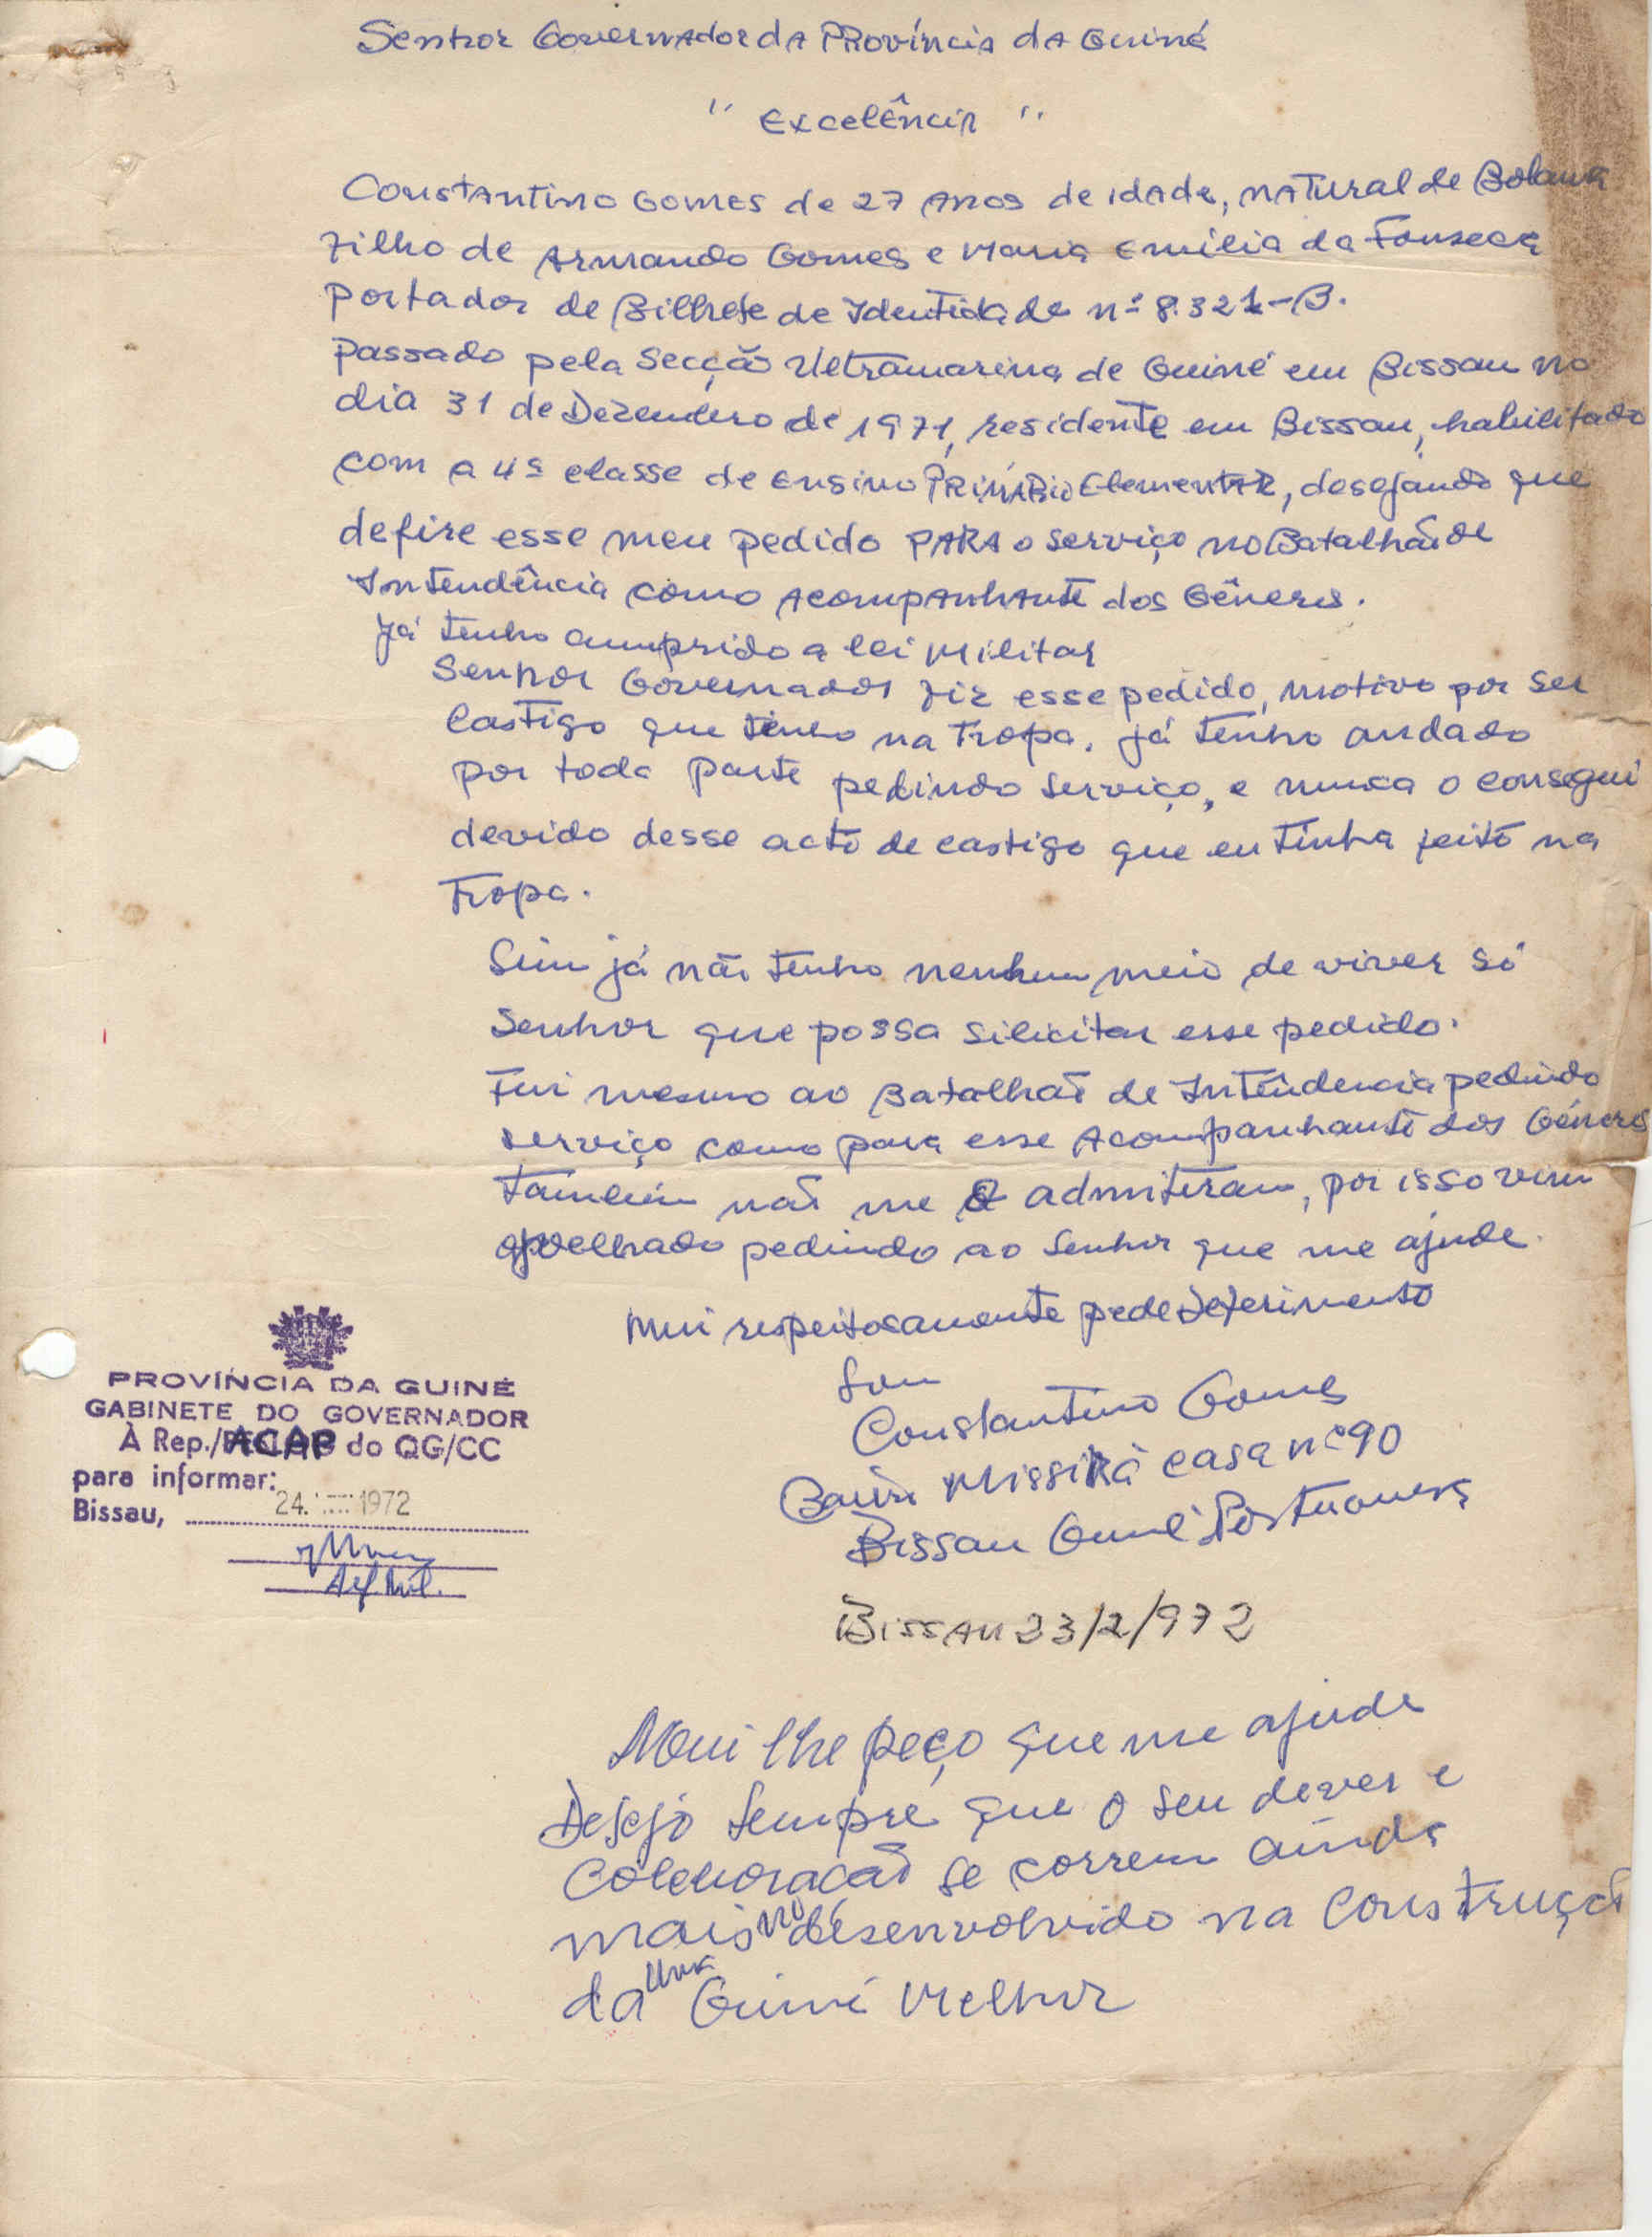 Senhor Governador da Província da Guiné
" Excelência "
Constantino Gomes de 27 anos de idade, natural de Bolama
filho de Armando Gomes e Maria Emília da Fonseca
portador de Bilhete de Identidade nº 8.321-B.
passado pela Secção Ultramarina de Guiné em Bissau no
dia 31 de Dezembro de 1971, residente em Bissau, habilitado
com a 4ª classe de ensino Primário Elementar, desejando que
defire esse meu pedido para o serviço no Batalhão de
Intendência como acompanhante dos Géneros.
Já tenho cumprido a lei Militar
Senhor Governador fiz esse pedido, motivo por ser
Castigo que tenho na Tropa. já tenho andado
por toda parte pedindo serviço, e nunca o consegui
devido desse acto de castigo que eu tinha feito na
Tropa.
Sim já não tenho nenhum meio de viver só
Senhor que possa silicitar esse pedido.
Fui mesmo ao Batalhão de Intêndencia pedindo
serviço como para esse Acompanhante dos Géneros
também não me admitiram, por isso vim
ajoelhado pedindo ao Senhor que me ajude.
Mui respeitosamente pede deferimento
Sou
Constantino Gomes
Bairro Missirá casa nº 90
Bissau Guiné Portuguesa
Bissau 23/2/972
PROVÍNCIA DA GUINÉ
GABINETE DO GOVERNADOR
À Rep./ACAP do QG/CC
para informar:
Bissau, 24. 1972
Alf. Mil.
Mui lhe peço que me ajude
Desejo sempre que o seu dever e
Colaboração se correm ainda
mais no désenvolvido na Construção
da uma Guiné Melhor